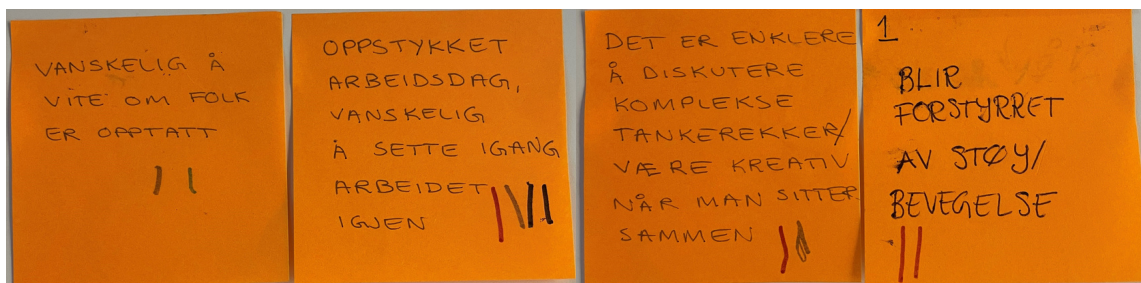 VANSKELIG Å
VITE OM FOLK
ER OPPTATT
OPPSTYKKET
ARBEIDSDAG,
VANSKELIG
Å SETTE IGANG
ARBEIDET
IGJEN
DET ER ENKLERE
Å DISKUTERE
KOMPLEKSE
TANKEREKKER/
VÆRE KREATIV
NÅR MAN SITTER
SAMMEN
1
BLIR
FORSTYRRET
AV STØY/
BEVEGELSE